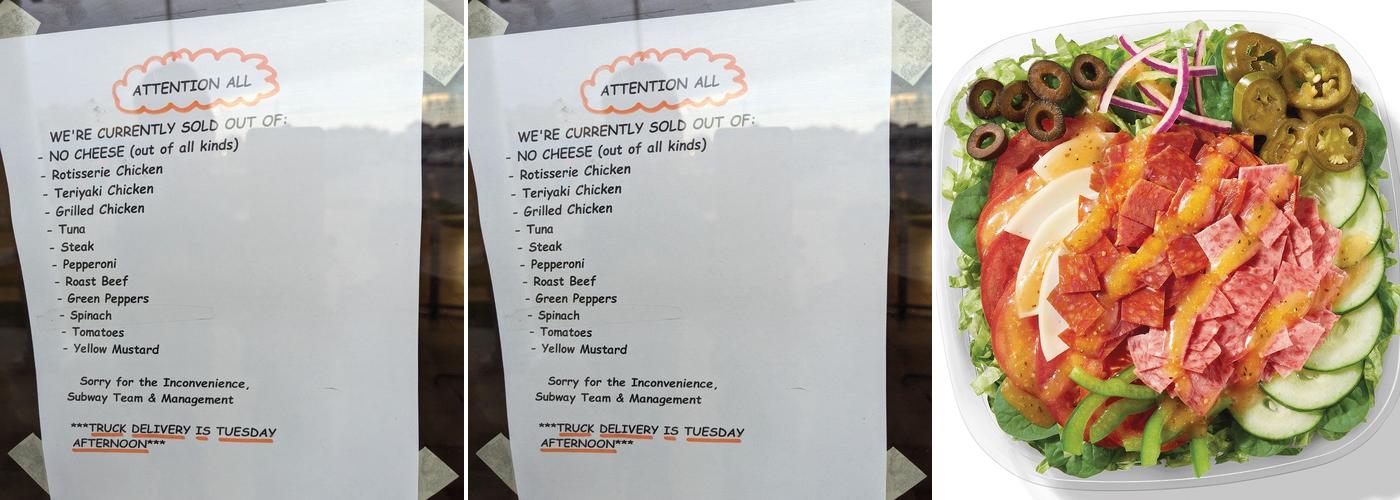 ATTENTION ALL
WE'RE CURRENTLY SOLD OUT OF:
- NO CHEESE (out of all kinds)
- Rotisserie Chicken
- Teriyaki Chicken
- Grilled Chicken
- Tuna
- Steak
- Pepperoni
- Roast Beef
- Green Peppers
- Spinach
- Tomatoes
- Yellow Mustard
Sorry for the Inconvenience,
Subway Team & Management
***TRUCK DELIVERY IS TUESDAY
AFTERNOON***
ATTENTION ALL
WE'RE CURRENTLY SOLD OUT OF:
- NO CHEESE (out of all kinds)
- Rotisserie Chicken
- Teriyaki Chicken
- Grilled Chicken
- Tuna
- Steak
- Pepperoni
- Roast Beef
- Green Peppers
- Spinach
- Tomatoes
- Yellow Mustard
Sorry for the Inconvenience,
Subway Team & Management
***TRUCK DELIVERY IS TUESDAY
AFTERNOON***